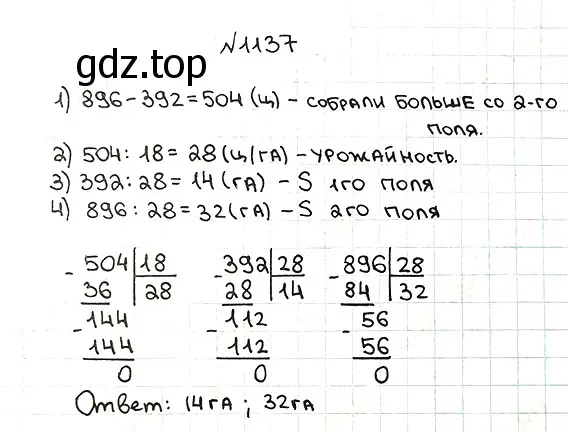 №1137
gdz.top
1) 896-392=504 (ц) - собрали больше со 2-го
поля.
2) 504 : 18 = 28 (ц/га) - урожайность.
3) 392 : 28 = 14 (га) - S 1го поля
4) 896 : 28 = 32 (га) - S 2го поля
- 504 | 18   - 392 | 28   - 896 | 28
36 | 28   28 | 14   84 | 32
- 144   - 112   - 56
144   112   56
0   0   0
Ответ: 14 га ; 32 га